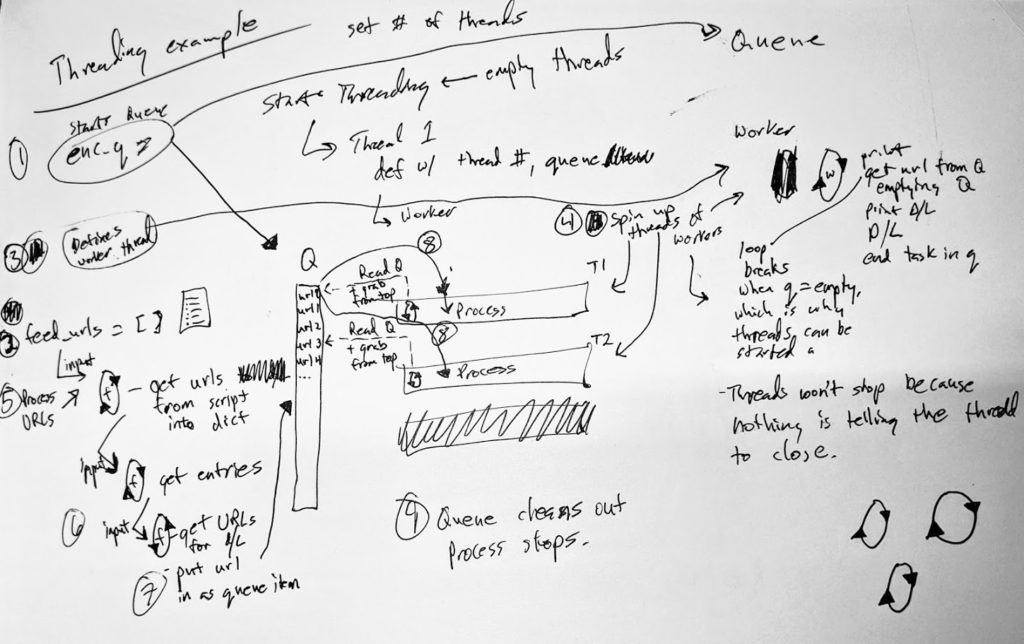 Threading example
set # of threads
Queue
Start Threading ← empty threads
Start Queue
1
enc-q
Thread 1
def w/ thread #, queue
Worker
3
Defines
worker thread
4
Spin up
threads of
workers
Worker
w
print
get url from Q
emptying Q
print D/L
D/L
end task in q
loop
breaks
when q = empty,
which is why
threads can be
started a
2
feed_urls = [ ]
input
5
Process
URLs
f
- get urls
from script
into dict
input
f
get entries
6
input
f
- get URLs
for D/L
7
- put url
in as queue item
Q
url 0
url 1
url 2
url 3
url 4
...
8
Read Q
+ grab
from top
Process
T1
8
Read Q
+ grab
from top
Process
T2
9
Queue cleans out
Process stops.
- Threads won't stop because
nothing is telling the thread
to close.